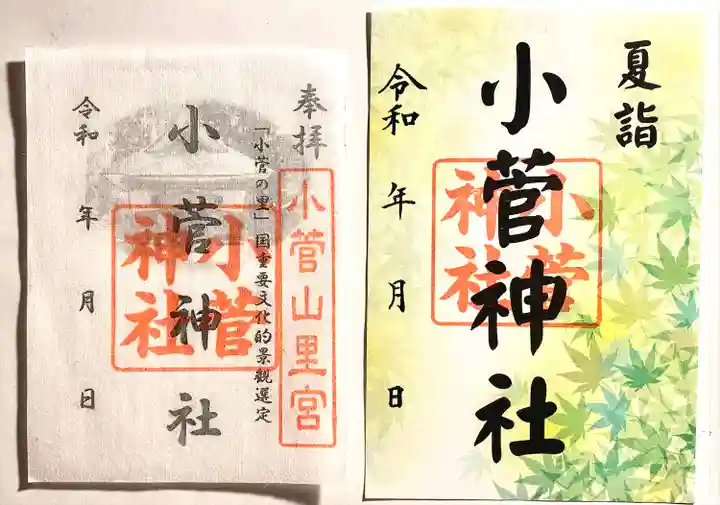 奉拝
小菅山里宮
「小菅の里」国重要文化的景観選定
小菅神社
小菅
神社
令和 年 月 日
夏詣
小菅神社
小菅
神社
令和 年 月 日